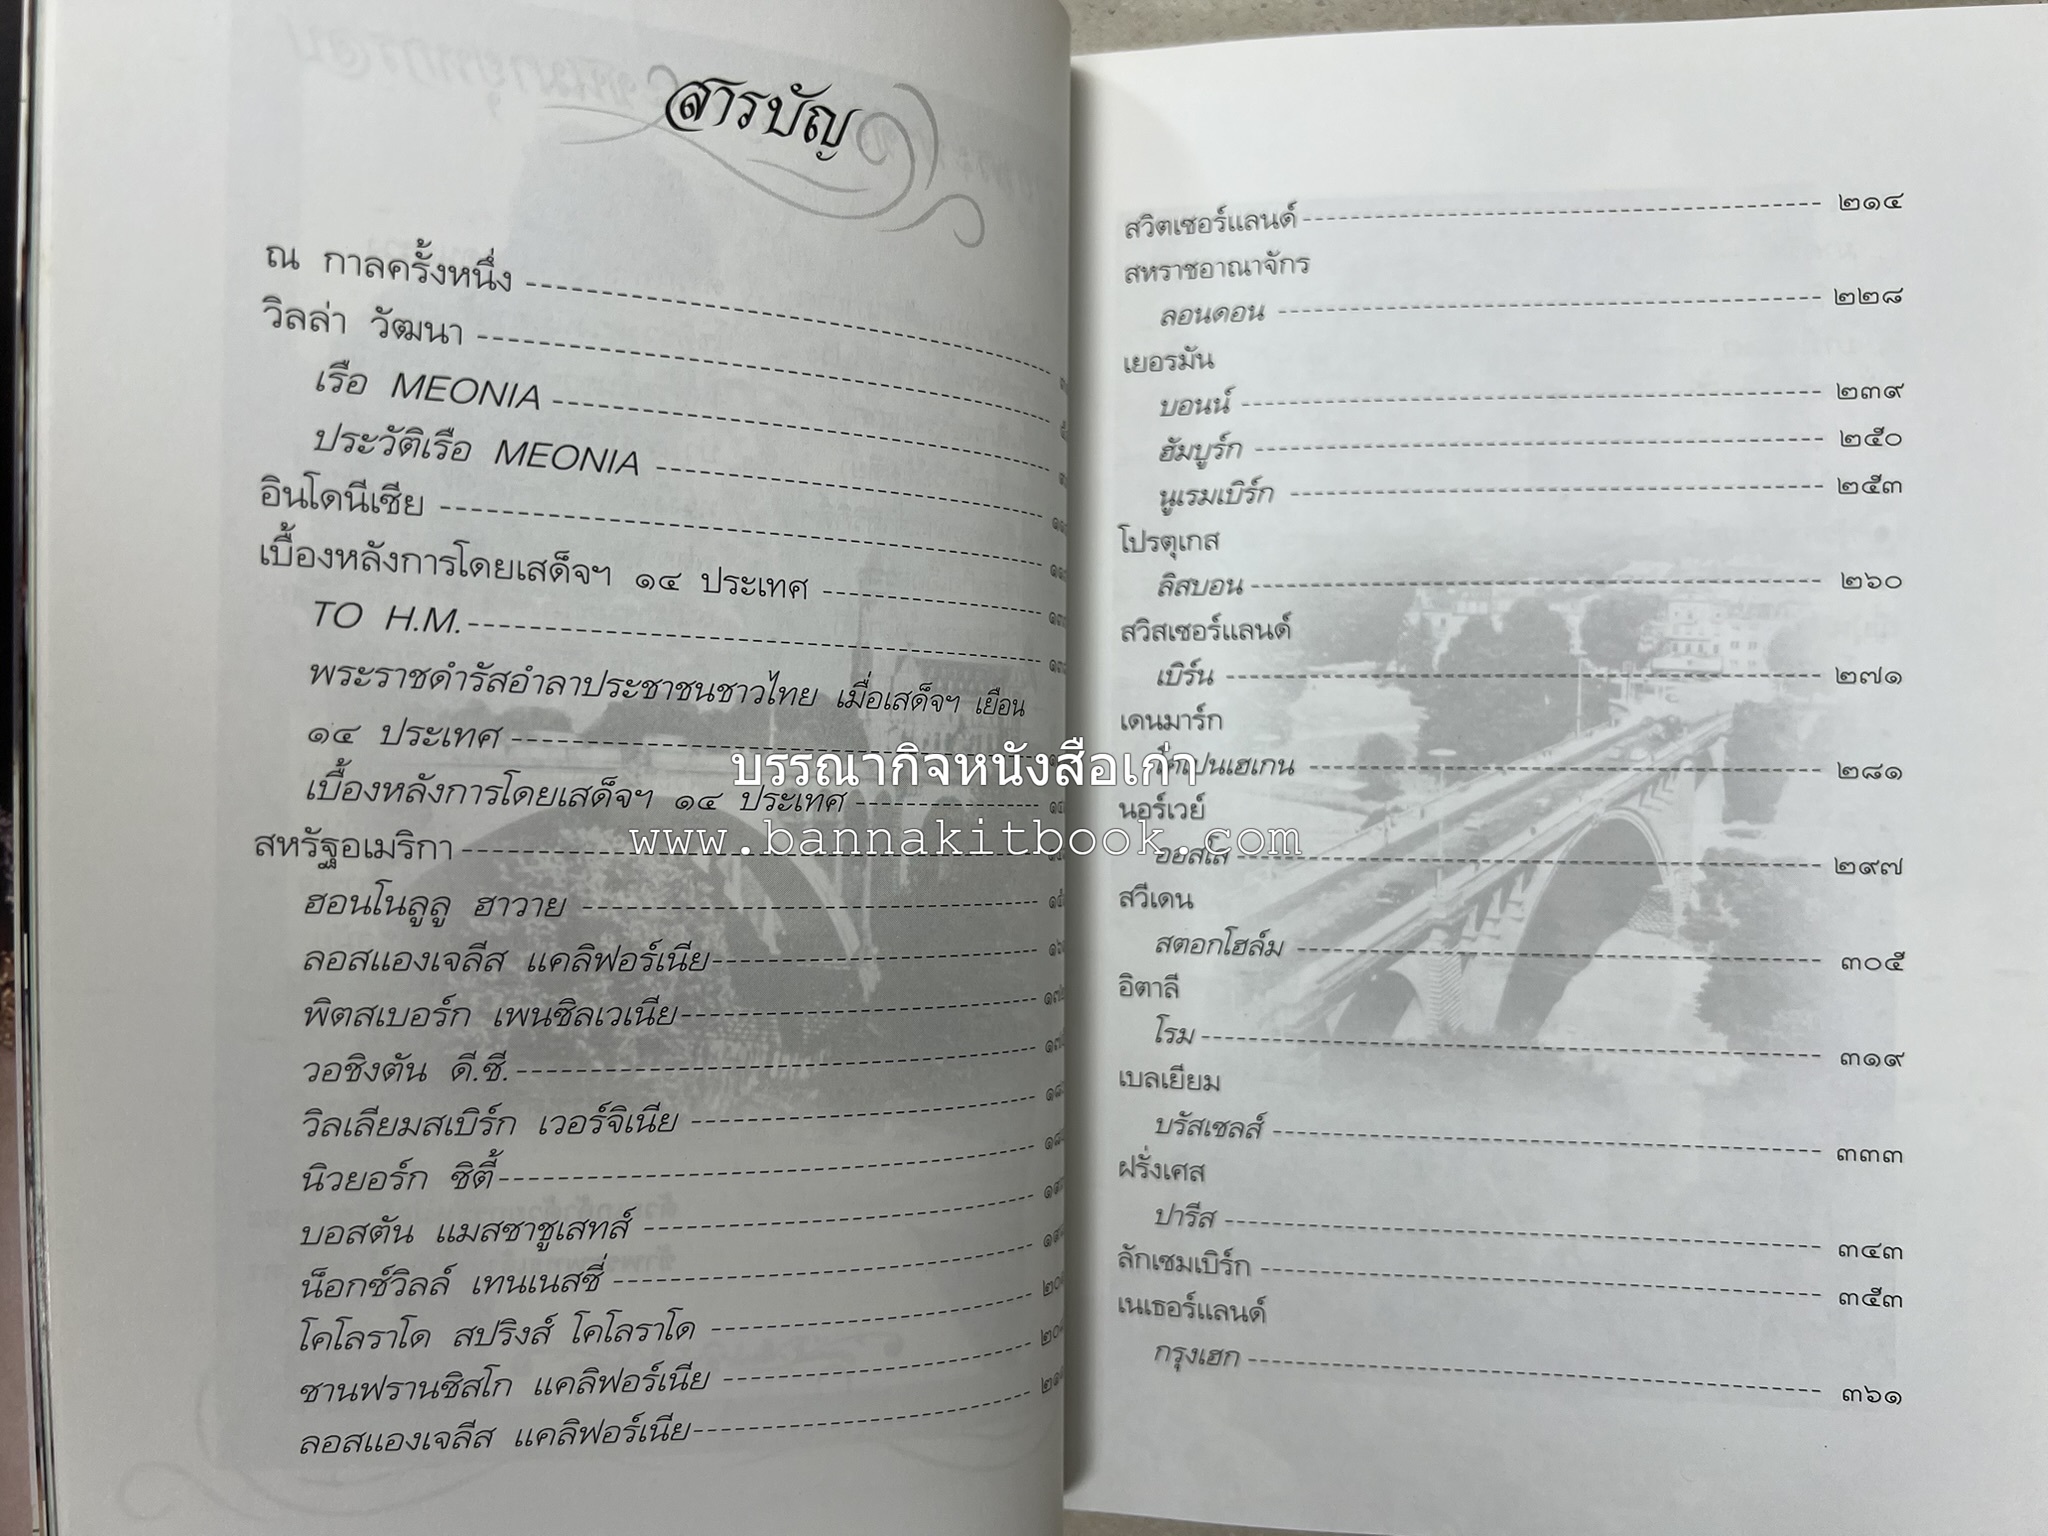 สารบัญ
ณ กาลครั้งหนึ่ง
วิลล่า วัฒนา
เรือ MEONIA
ประวัติเรือ MEONIA
อินโดนีเซีย
เบื้องหลังการโดยเสด็จฯ ๑๔ ประเทศ
TO H.M.
พระราชดำรัสอำลาประชาชนชาวไทย เมื่อเสด็จฯ เยือน
๑๔ ประเทศ
เบื้องหลังการโดยเสด็จฯ ๑๔ ประเทศ
สหรัฐอเมริกา
ฮอนโนลูลู ฮาวาย
ลอสแองเจลีส แคลิฟอร์เนีย
พิตสเบอร์ก เพนซิลเวเนีย
วอชิงตัน ดี.ซี.
วิลเลียมสเบิร์ก เวอร์จิเนีย
นิวยอร์ก ซิตี้
บอสตัน แมสซาชูเสทส์
น็อกซ์วิลล์ เทนเนสซี่
โคโลราโด สปริงส์ โคโลราโด
ซานฟรานซิสโก แคลิฟอร์เนีย
ลอสแองเจลีส แคลิฟอร์เนีย
สวิตเซอร์แลนด์ ๒๑๔
สหราชอาณาจักร
ลอนดอน ๒๒๘
เยอรมัน
บอนน์ ๒๓๙
ฮัมบูร์ก ๒๕๐
นูเรมเบิร์ก ๒๕๓
โปรตุเกส
ลิสบอน ๒๖๐
สวิสเซอร์แลนด์
เบิร์น ๒๗๑
เดนมาร์ก
โคเปนเฮเกน ๒๘๑
นอร์เวย์
ออสโล ๒๙๗
สวีเดน
สตอกโฮล์ม ๓๐๕
อิตาลี
โรม ๓๑๙
เบลเยียม
บรัสเซลส์ ๓๓๓
ฝรั่งเศส
ปารีส ๓๔๓
ลักเซมเบิร์ก ๓๕๓
เนเธอร์แลนด์
กรุงเฮก ๓๖๑
บรรณากิจหนังสือเก่า
www.bannakitbook.com